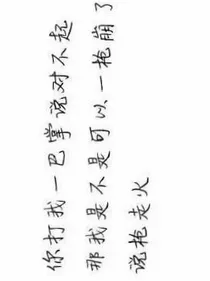 你打我一巴掌说对不起
那我是不是可以一枪崩了
说枪走火